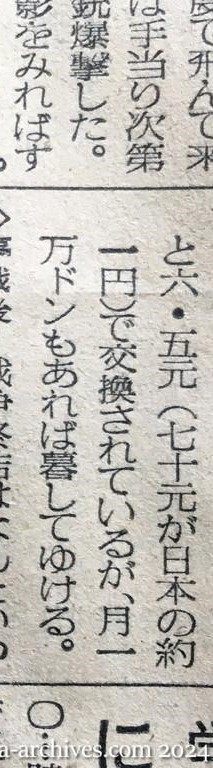 度で飛んで来
は手当り次第
銃爆撃した。
影をみればす
と六・五元（七十元が日本の約
一円）で交換されているが、月一
万ドンもあれば暮してゆける。
に
〇
a-archives.com 2024